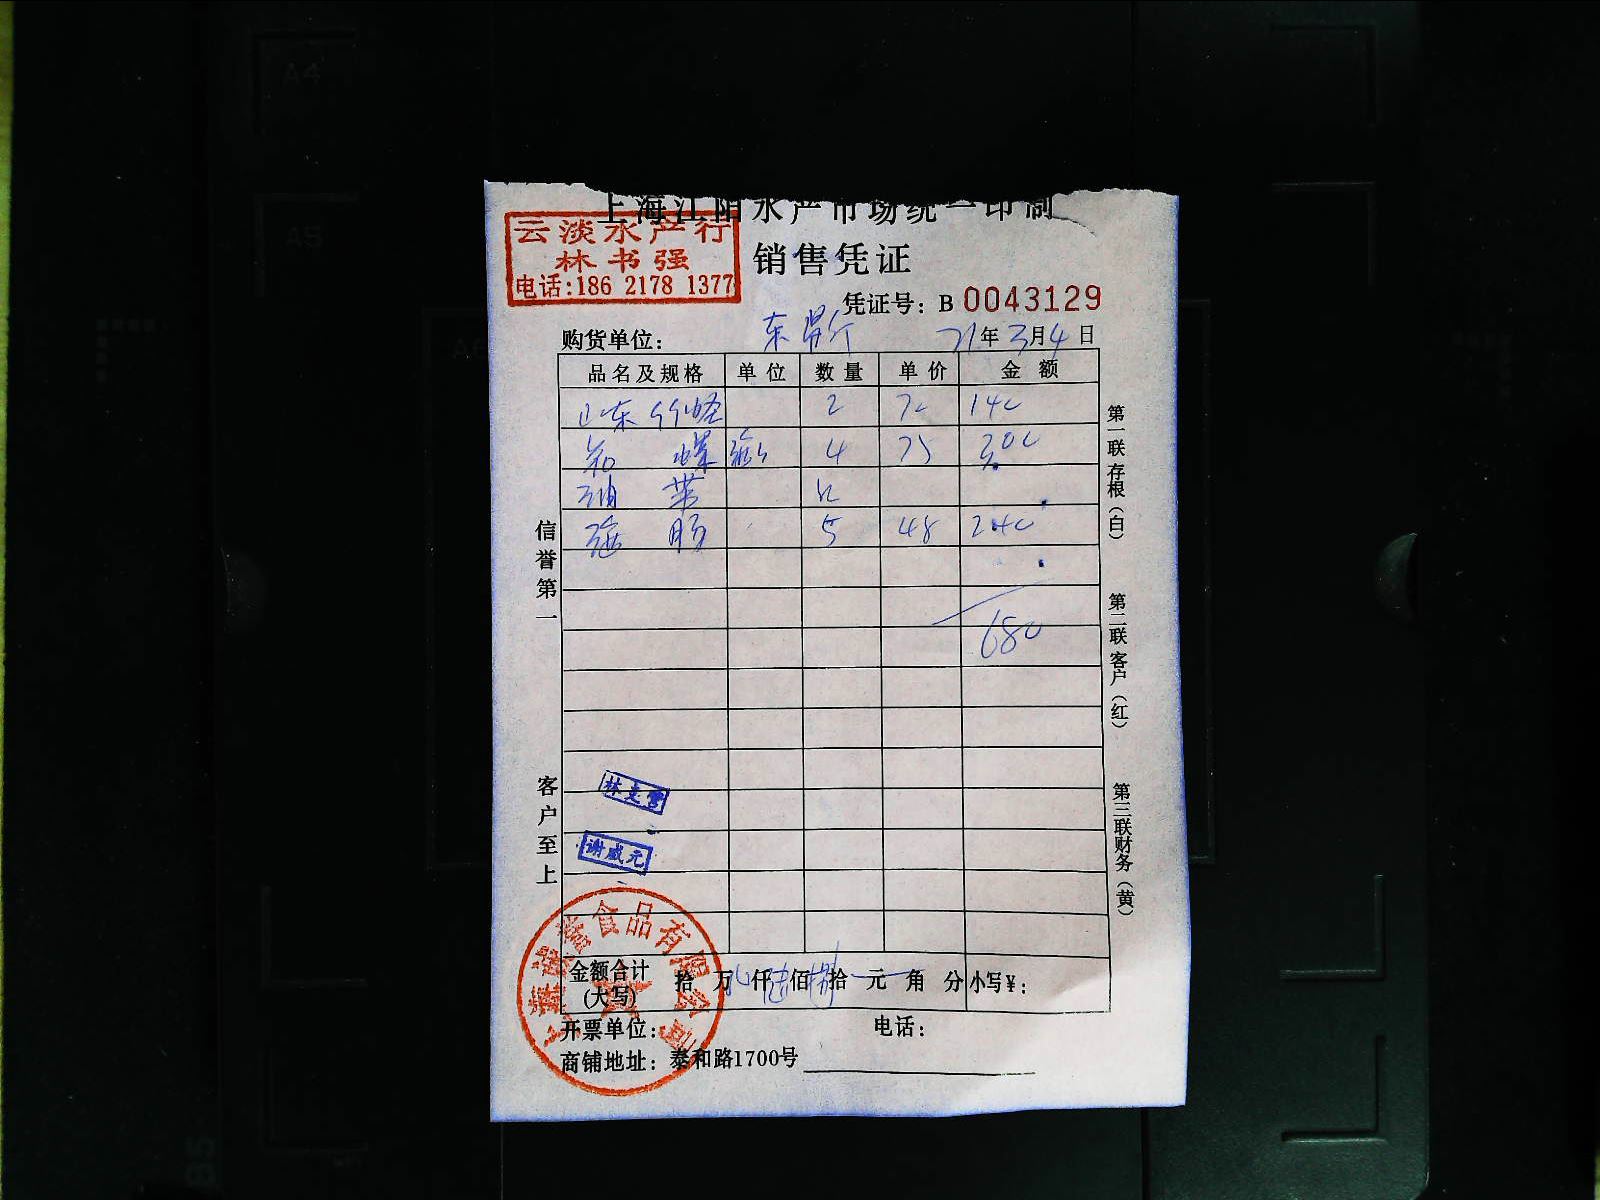 上海江阳水产市场统一印制
云淡水产行
林书强
电话:186 2178 1377
销售凭证
凭证号: B 0043129
购货单位: 东 21年3月4日
品名及规格 单位 数量 单价 金额
山东竹蛏 2 70 140
螺 4 75 300
带
海肠 5 48 240
680
信誉第一
客户至上
第一联存根(白)
第二联客户(红)
第三联财务(黄)
谢威元
食品有限公司
金额合计
(大写)
拾 万 仟 陆 佰 捌 拾 元 角 分 小写¥:
开票单位: 电话:
商铺地址: 泰和路1700号